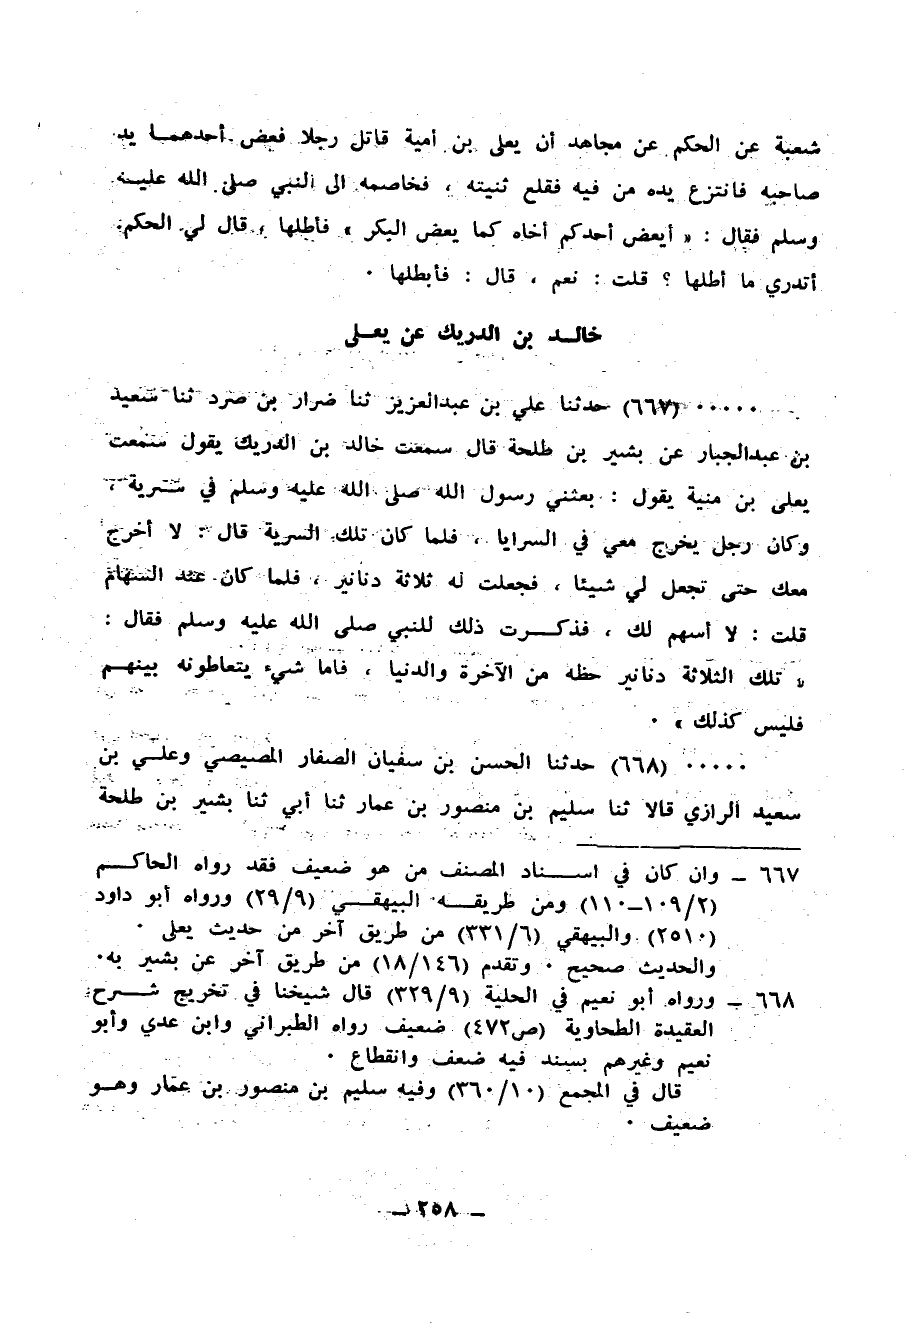 شعبة عن الحكم عن مجاهد أن يعلى بن أمية قاتل رجلا فعض أحدهمـا يد
صاحبه فانتزع يده من فيه فقلع ثنيته ، فخاصمه الى النبي صلى الله عليـه
وسلم فقال : « أيعض أحدكم أخاه كما يعض البكر » فأطلها ، قال لي الحكم
أتدري ما أطلها ؟ قلت : نعم ، قال : فأبطلها ٠
خالـد بن الدريك عن يعـلى
٠٠٠٠٠ (٦٦٧) حدثنا علي بن عبدالعزيز ثنا ضرار بن صرد ثنا سعيد
بن عبدالجبار عن بشير بن طلحة قال سمعت خالد بن الدريك يقول سمعت
يعلى بن منية يقول : بعثني رسول الله صلى الله عليه وسلم في سـرية ،
وكان رجل يخرج معي في السرايا ، فلما كان تلك السرية قال : لا أخرج
معك حتى تجعل لي شيئا ، فجعلت له ثلاثة دنانير ، فلما كان عند السهام
قلت : لا أسهم لك ، فذكـــرت ذلك للنبي صلى الله عليه وسلم فقال :
« تلك الثلاثة دنانير حظه من الآخرة والدنيا ، فاما شيء يتعاطونه بينهـم
فليس كذلك » ٠
٠٠٠٠٠ (٦٦٨) حدثنا الحسن بن سفيان الصفار المصيصي وعلـي بن
سعيد الرازي قالا ثنا سليم بن منصور بن عمار ثنا أبي ثنا بشير بن طلحة
٦٦٧ ـ وان كان في اســـناد المصنف من هو ضعيف فقد رواه الحاكـــم
(٢/١٠٩ـ١١٠) ومن طريقـــه البيهقـــي (٩/٢٩) ورواه أبو داود
(٢٥١٠) والبيهقي (٦/٣٣١) من طريق آخر من حديث يعلى ٠
والحديث صحيح ٠ وتقدم (١٨/١٤٦) من طريق آخر عن بشير به٠
٦٦٨ ـ ورواه أبو نعيم في الحلية (٩/٣٢٩) قال شيخنا في تخريج شـــرح
العقيدة الطحاوية (ص٤٧٢) ضعيف رواه الطبراني وابن عدي وأبو
نعيم وغيرهم بسند فيه ضعف وانقطاع ٠
قال في المجمع (١٠/٣٦٠) وفيه سليم بن منصور بن عمار وهـو
ضعيف ٠
ـ ٢٥٨ ـ